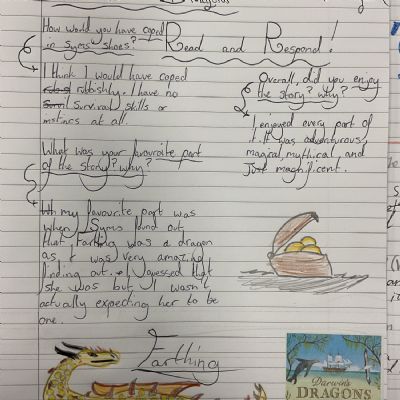 How would you have coped
in Syms' shoes?
Read and Respond!
I think I would have coped
rubbishly. I have no
survival skills or
instincs at all.
Overall, did you enjoy
the story? why?
I enjoyed every part of
it. It was adventurous,
magical, mythical, and
Just magnificent.
What was your favourite part
of the story? Why?
my favourite part was
when Syms found out
that Farthing was a dragon
as it was very amazing
finding out. I guessed that
she was but I wasn't
actually expecting her to be
one.
Farthing
Darwin's
DRAGONS